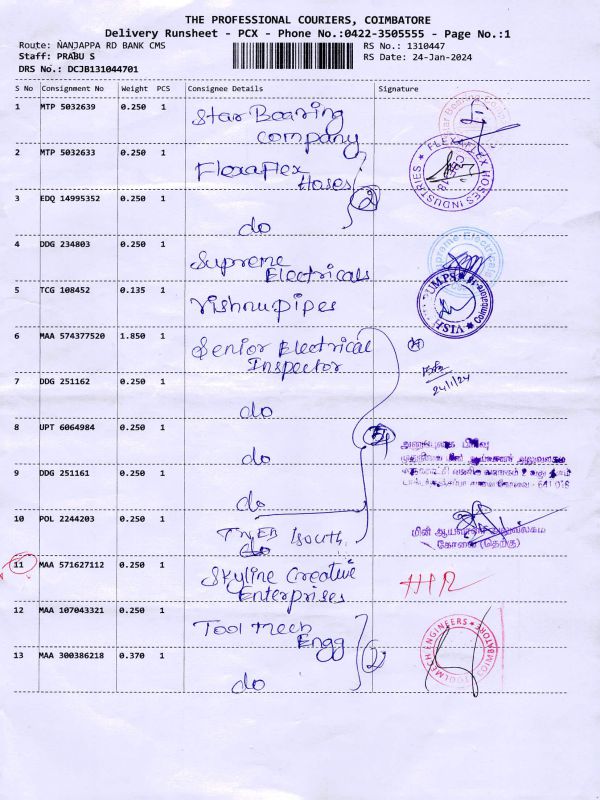 THE PROFESSIONAL COURIERS, COIMBATORE
Delivery Runsheet - PCX - Phone No.:0422-3505555 - Page No.:1
Route: NANJAPPA RD BANK CMS
RS No.: 1310447
Staff: PRABU S
RS Date: 24-Jan-2024
DRS No.: DCJB131044701
S No Consignment No Weight PCS Consignee Details Signature
1 MTP 5032639 0.250 1 Star Boaring
Company
2 MTP 5032633 0.250 1 Flexaflex
Hoses
FLEXAFLEX HOSES INDUSTRIES
3 EDQ 14995352 0.250 1 do
2
4 DDG 234803 0.250 1 Supreme
Electricals
Supreme Electricals
5 TCG 108452 0.135 1 Vishnupipes
6 MAA 574377520 1.850 1 Senior Electrical
Inspector
24/1/24
7 DDG 251162 0.250 1 do
8 UPT 6064984 0.250 1 do
9 DDG 251161 0.250 1 do
10 POL 2244203 0.250 1 TNEB South
do
மின் ஆய்வாளர் அலுவலகம்
கோவை (தெற்கு)
11 MAA 571627112 0.250 1 Skyline Creative
Enterprises
12 MAA 107043321 0.250 1 Tool mech
Engg
TOOLMECH ENGINEERS COIMBATORE
2
13 MAA 300386218 0.370 1 do